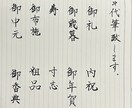 代筆致し□す
御礼
内祝
御歳暮
御年賀
寿
寸志
御布施
粗品
御中元
御香典